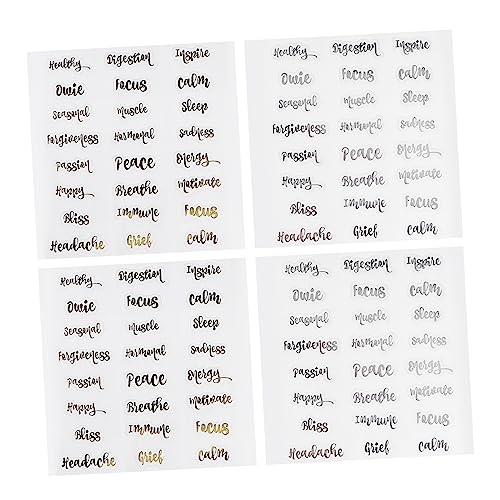 Healthy Digestion Inspire
Owie Focus Calm
Seasonal Muscle Sleep
Forgiveness Hormonal Sadness
Passion Peace Energy
Happy Breathe Motivate
Bliss Immune Focus
Headache Grief Calm
Healthy Digestion Inspire
Owie Focus Calm
Seasonal Muscle Sleep
Forgiveness Hormonal Sadness
Passion Peace Energy
Happy Breathe Motivate
Bliss Immune Focus
Headache Grief Calm
Healthy Digestion Inspire
Owie Focus Calm
Seasonal Muscle Sleep
Forgiveness Hormonal Sadness
Passion Peace Energy
Happy Breathe Motivate
Bliss Immune Focus
Headache Grief Calm
Healthy Digestion Inspire
Owie Focus Calm
Seasonal Muscle Sleep
Forgiveness Hormonal Sadness
Passion Peace Energy
Happy Breathe Motivate
Bliss Immune Focus
Headache Grief Calm